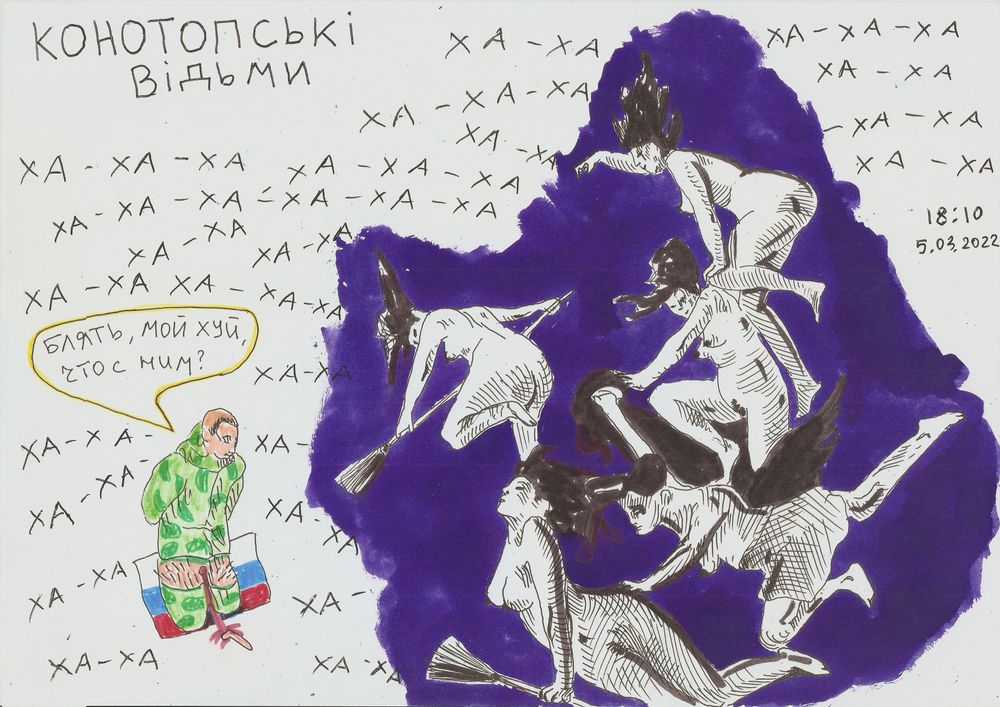 КОНОТОПСЬКІ
ВІДЬМИ
ХА-ХА
ХА-ХА-ХА
ХА-ХА-ХА
ХА-ХА
ХА-ХА
-ХА-ХА
ХА-ХА
ХА-ХА-ХА
ХА-ХА-ХА
ХА-ХА-ХА-ХА-ХА-ХА-ХА
ХА-ХА
ХА-ХА
18:10
5.03.2022
ХА-ХА ХА-
ХА-ХА
БЛЯТЬ, МОЙ ХУЙ,
ЧТО С НИМ?
ХА-ХА
ХА-ХА-
ХА-
ХА-ХА
ХА-
ХА
ХА-ХА
ХА-
ХА-ХА
ХА-ХА